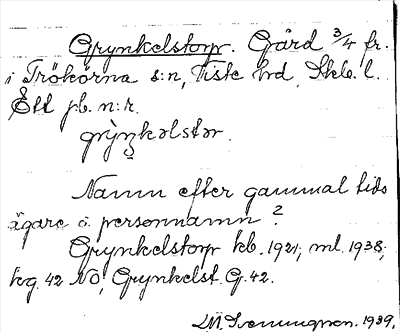 Grynkelstorp. Gård 3/4 fr.
i Trökörna s:n, Viste hd, Skb. l.
Ett jb. n:r.
grỳŋkəlstər.
Namn efter gammal tids
ägare o. personnamn?
Grynkelstorp kb. 1921; ml. 1938;
kg. 42 NO, Grynkelst. G. 42.
1939.